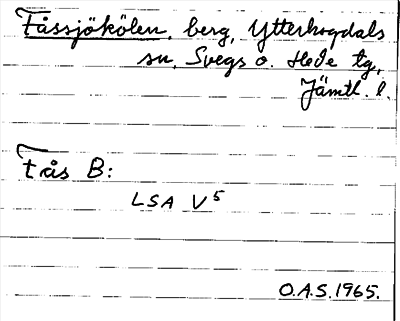 Fåssjökölen, berg, Ytterhogdals
sn, Svegs o. Hede tg,
Jämtl. l.
Fås B:
LSA V5
O.A.S. 1965.